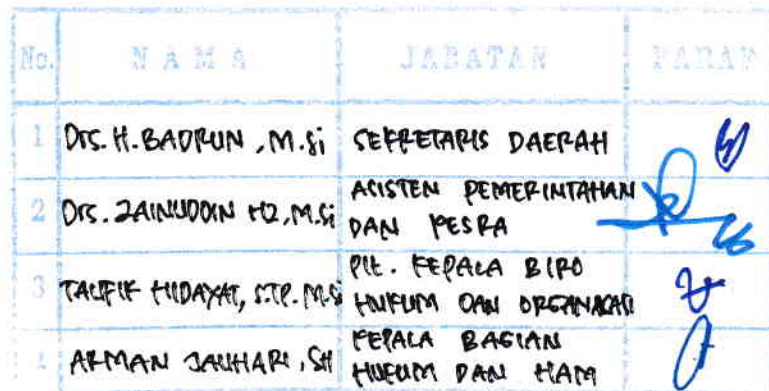 No. NAMA JABATAN PARAF
1 Drs. H. BADRUN, M.Si SEKRETARIS DAERAH
2 Drs. ZAINUDDIN HZ, M.Si ASISTEN PEMERINTAHAN
DAN KESRA
3 TAUFIK HIDAYAT, STP. M.Si PLt. KEPALA BIRO
HUKUM DAN ORGANISASI
4 ARMAN JAUHARI, SH KEPALA BAGIAN
HUKUM DAN HAM